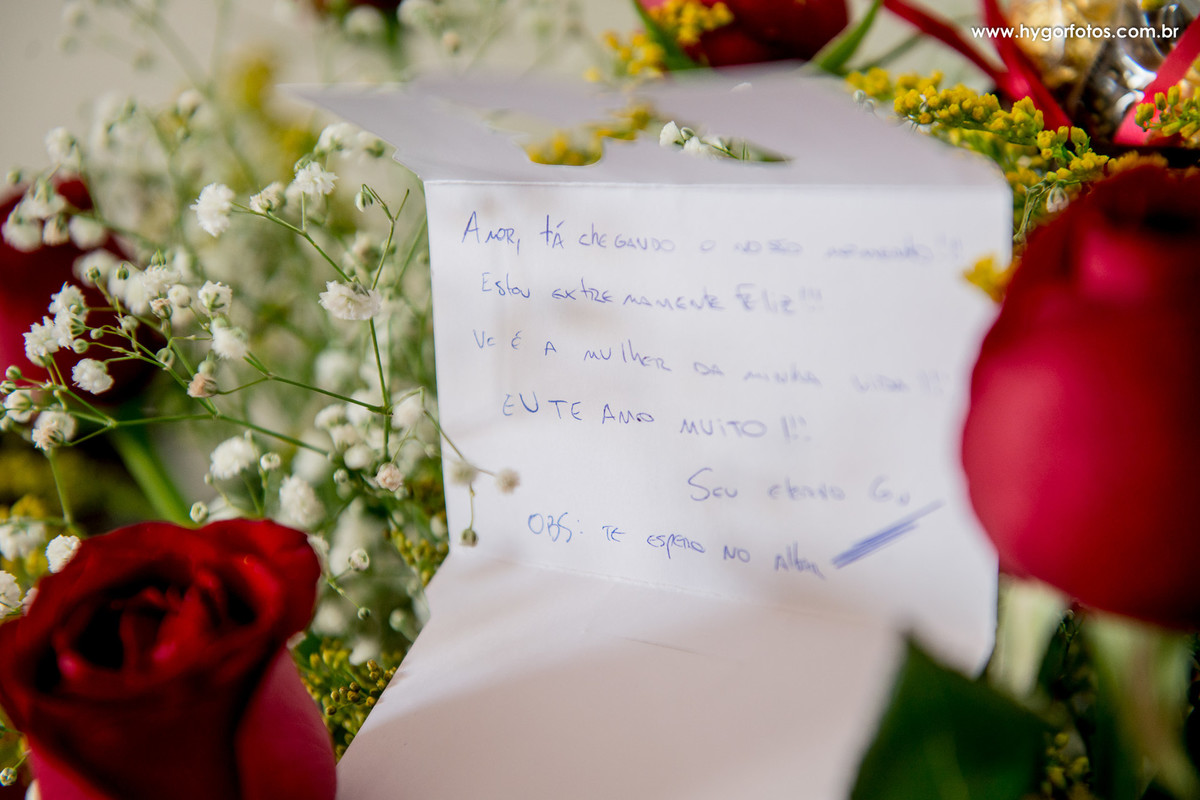 www.hygorfotos.com.br
Amor, tá chegando o nosso momento!!!
Estou extremamente Feliz!!!
Vc é a mulher da minha vida!!!
EU TE AMO MUITO!!!
Seu eterno G..
OBS: TE espero no Altar